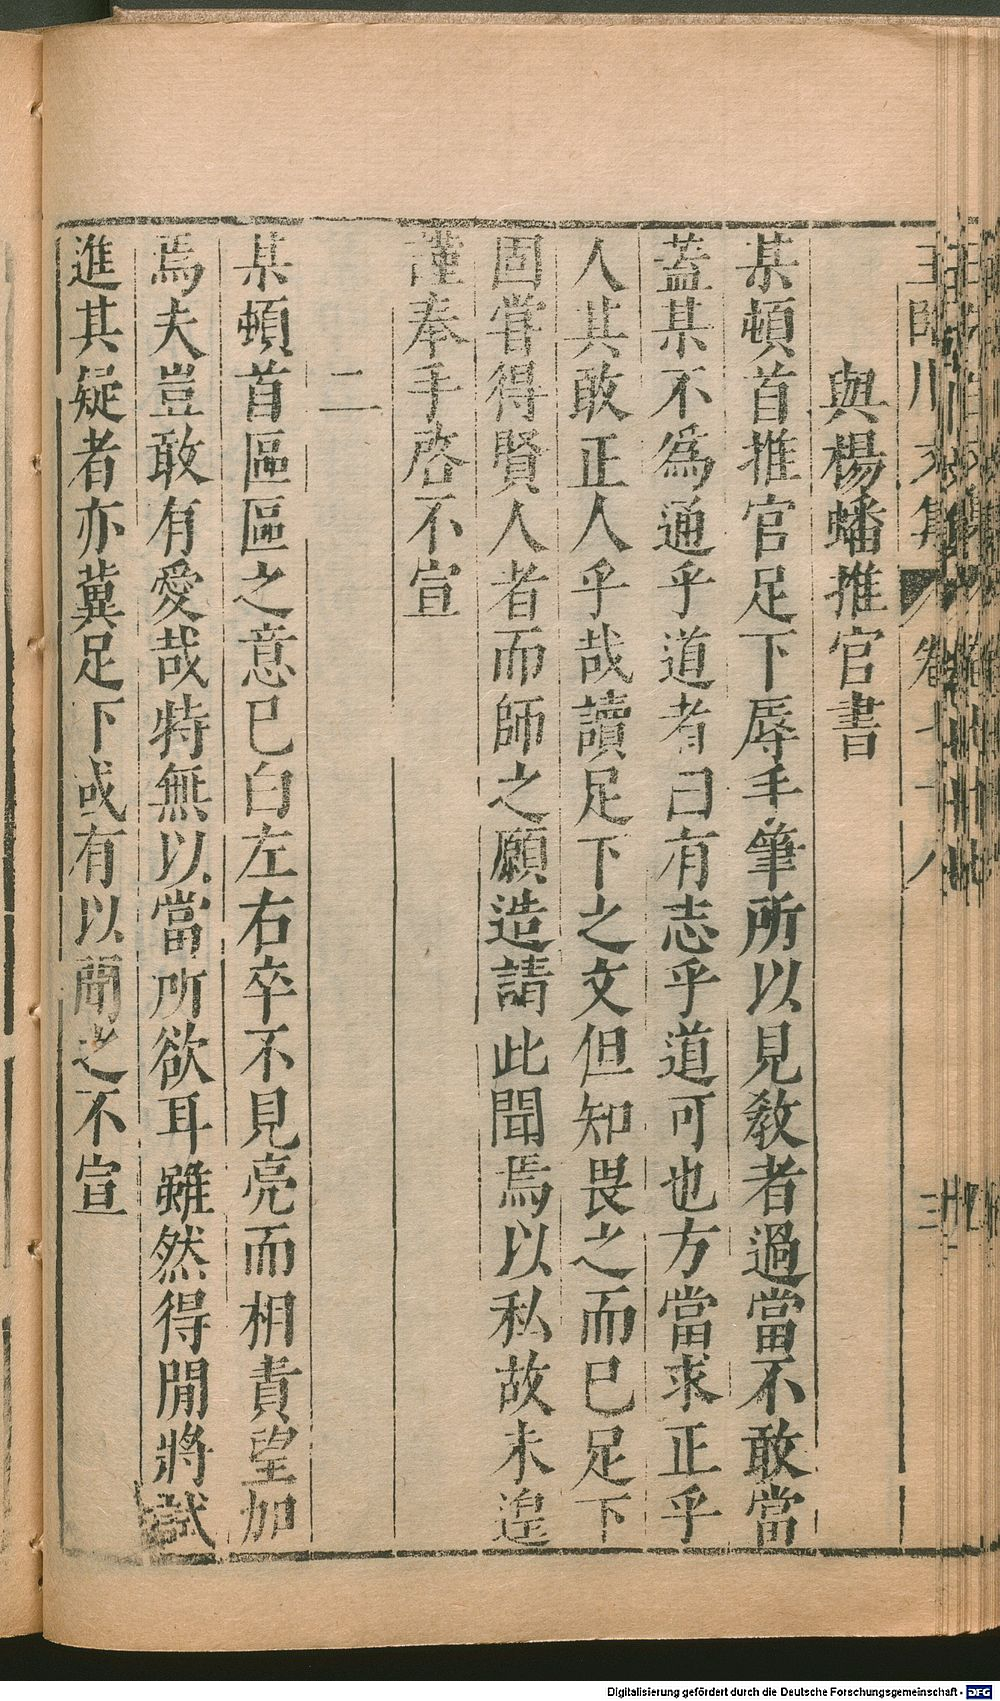 王臨川文集 卷七十八 三
與楊蟠推官書
某頓首推官足下辱手筆所以見教者過當不敢當
蓋某不為通乎道者曰有志乎道可也方當求正乎
人其敢正人乎哉讀足下之文但知畏之而已足下
固嘗得賢人者而師之願造請此聞焉以私故未遑
謹奉手啓不宣
二
某頓首區區之意已白左右卒不見亮而相責望加
焉夫豈敢有愛哉特無以當所欲耳雖然得閒將試
進其疑者亦冀足下或有以聞之不宣
Digitalisierung gefördert durch die Deutsche Forschungsgemeinschaft - DFG